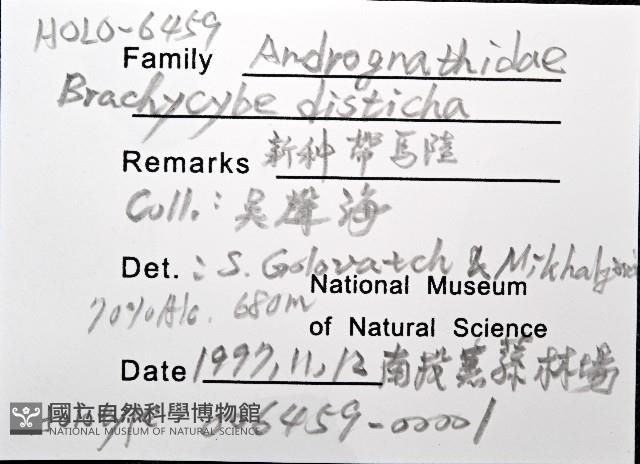 HOLO-6459
Family Andrognathidae
Brachycybe disticha
Remarks 新种帶馬陸
Coll.: 吳聲海
Det.: S. Golovatch & Mikhaljova
70%Alc. 680m National Museum
of Natural Science
Date 1997,11,12 南投惠蓀林場
國立自然科學博物館
NATIONAL MUSEUM OF NATURAL SCIENCE
6459-00001